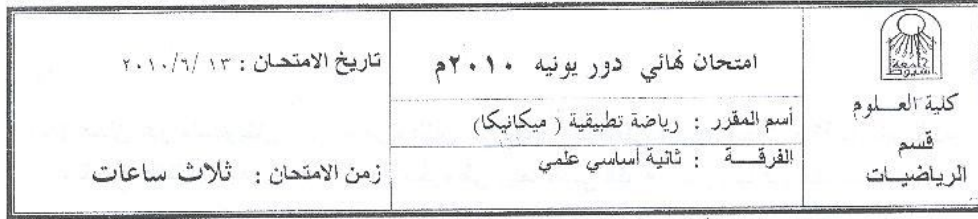 جامعة
أسيوط
كلية العـــلوم
قسم
الرياضيـات
امتحان نهائي دور يونيه ٢٠١٠م
أسم المقرر : رياضة تطبيقية ( ميكانيكا)
الفرقـــة : ثانية أساسي علمي
تاريخ الامتحان : ١٣ /٢٠١٠/٦
زمن الامتحان : ثلاث ساعات